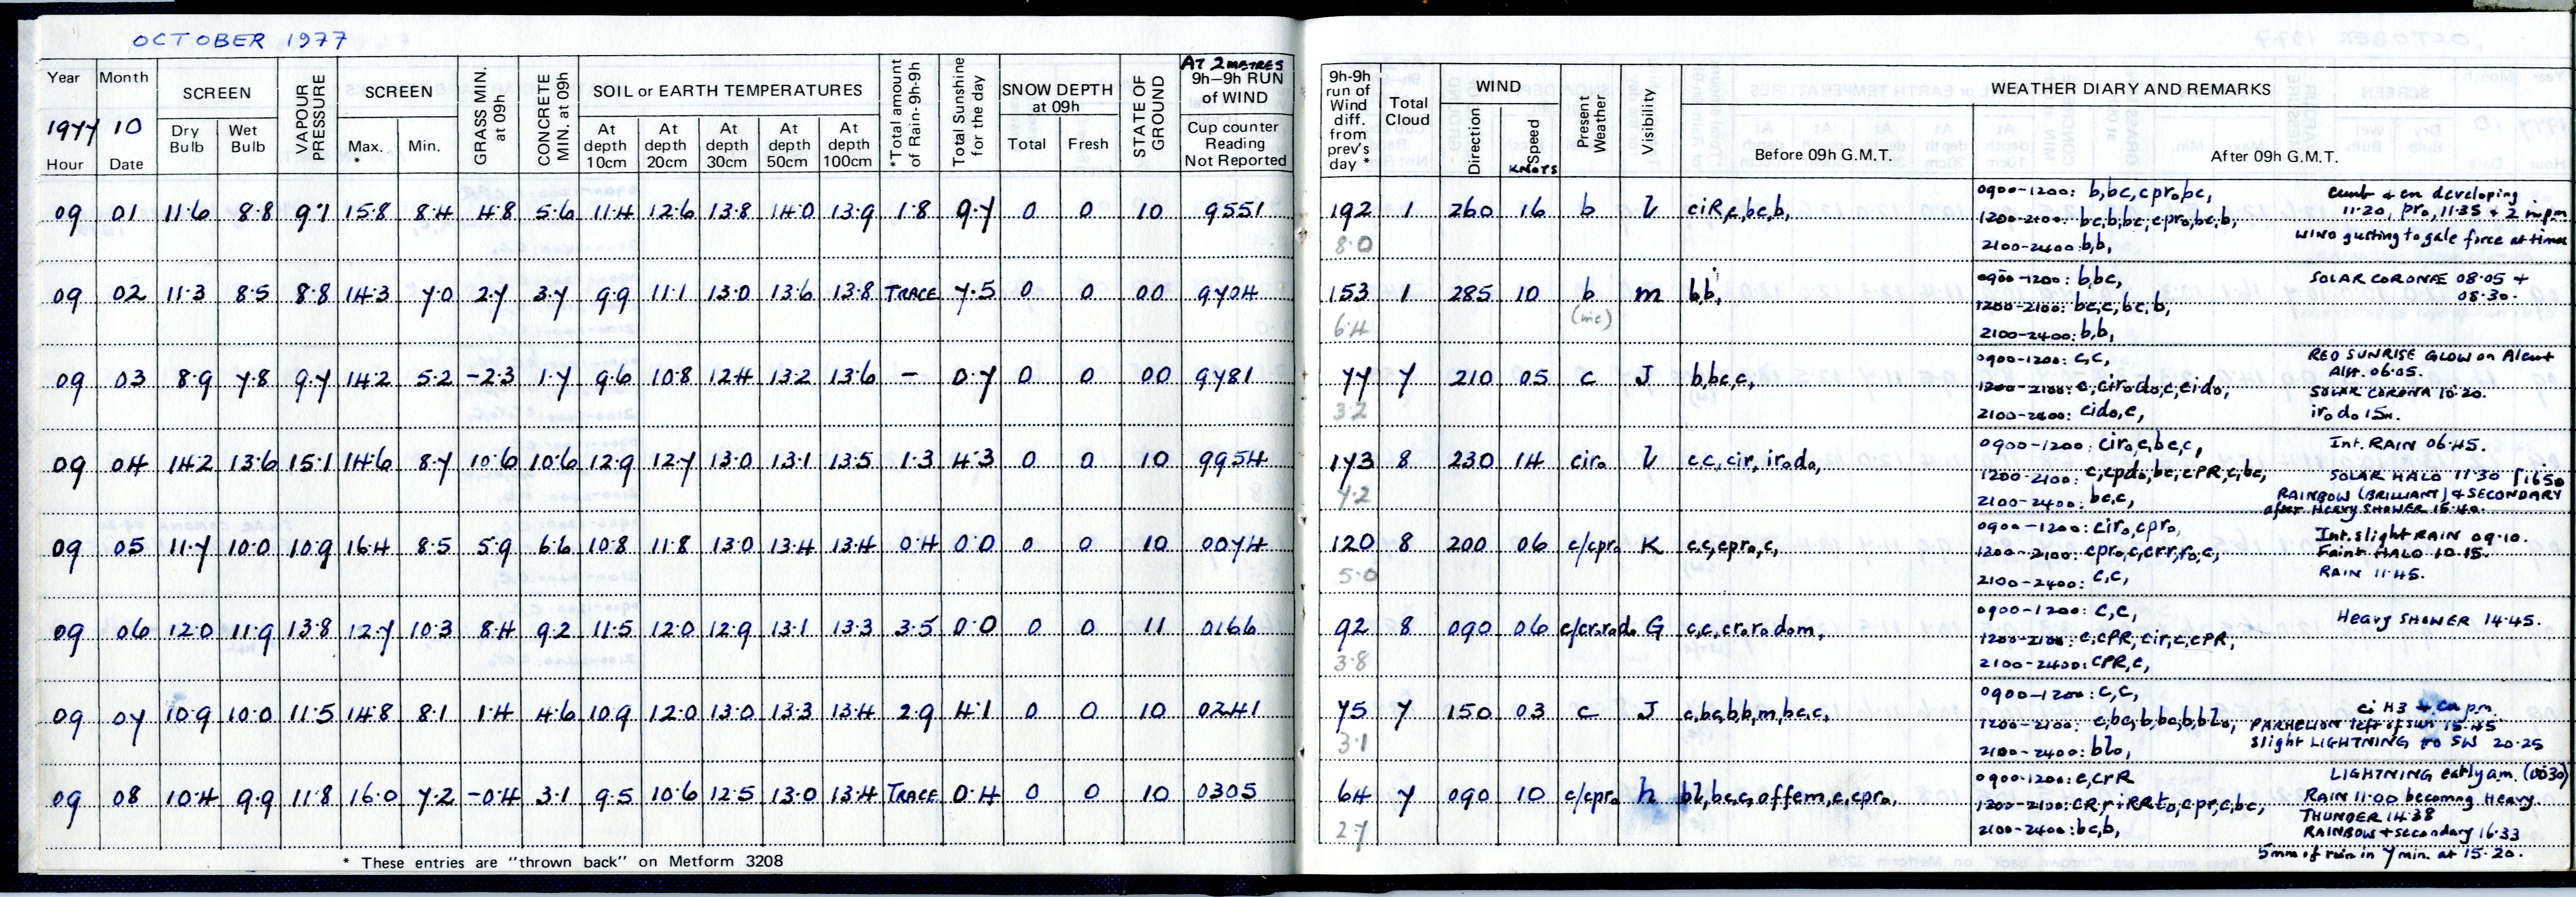 OCTOBER 1977
Year Month SCREEN VAPOUR PRESSURE SCREEN GRASS MIN. at 09h CONCRETE MIN. at 09h SOIL or EARTH TEMPERATURES *Total amount of Rain-9h-9h Total Sunshine for the day SNOW DEPTH at 09h STATE OF GROUND AT 2 METRES 9h–9h RUN of WIND
1977 10 Dry Bulb Wet Bulb Max. * Min. At depth 10cm At depth 20cm At depth 30cm At depth 50cm At depth 100cm Total Fresh Cup counter Reading Not Reported
Hour Date
09 01 11.6 8.8 9.1 15.8 8.4 4.8 5.6 11.4 12.6 13.8 14.0 13.9 1.8 9.7 0 0 10 9551
09 02 11.3 8.5 8.8 14.3 7.0 2.7 3.7 9.9 11.1 13.0 13.6 13.8 TRACE 7.5 0 0 00 9704
09 03 8.9 7.8 9.7 14.2 5.2 -2.3 1.7 9.6 10.8 12.4 13.2 13.6 – 0.7 0 0 00 9781
09 04 14.2 13.6 15.1 14.6 8.7 10.6 10.6 12.9 12.7 13.0 13.1 13.5 1.3 4.3 0 0 10 9954
09 05 11.7 10.0 10.9 16.4 8.5 5.9 6.6 10.8 11.8 13.0 13.4 13.4 0.4 0.0 0 0 10 0074
09 06 12.0 11.9 13.8 12.7 10.3 8.4 9.2 11.5 12.0 12.9 13.1 13.3 3.5 0.0 0 0 11 0166
09 07 10.9 10.0 11.5 14.8 8.1 1.4 4.6 10.9 12.0 13.0 13.3 13.4 2.9 4.1 0 0 10 0241
09 08 10.4 9.9 11.8 16.0 7.2 -0.4 3.1 9.5 10.6 12.5 13.0 13.4 TRACE 0.4 0 0 10 0305
* These entries are "thrown back" on Metform 3208
9h-9h run of Wind diff. from prev's day * Total Cloud WIND Present Weather Visibility WEATHER DIARY AND REMARKS
Direction Speed KNOTS Before 09h G.M.T. After 09h G.M.T.
192 1 260 16 b l ciR,c,bc,b, 0900-1200: b,bc,cpr₀,bc, cumb + cn developing
8.0 1200-2100: bc,b,bc,cpr₀,bc,b, 11.20, pr₀, 11.35 + 2
2100-2400: b,b, WIND gusting to gale force at times
153 1 285 10 b m b,b, 0900-1200: b,bc, SOLAR CORONAE 08.05 +
6.4 (mc) 1200-2100: bc,c,bc,b, 08.30.
2100-2400: b,b,
77 7 210 05 c J b,bc,c, 0900-1200: c,c, RED SUNRISE GLOW on Alcut
3.2 1200-2100: c,cir₀d₀,c,cid₀, Alt. 06.05.
SOLAR CORONA 10.20.
2100-2400: cid₀,c, ir₀d₀ 15h.
173 8 230 14 cir₀ l c,c,cir,ir₀d₀, 0900-1200: cir₀,c,bc,c, Int. RAIN 06.45.
7.2 1200-2100: c,cpd₀,bc,cPR,c,bc, SOLAR HALO 11.30 [1650
2100-2400: bc,c, RAINBOW (BRILLIANT) & SECONDARY
after HEAVY SHOWER 15.40.
120 8 200 06 c/cpr₀ K c,c,cpr₀,c, 0900-1200: cir₀,cpr₀, Int. slight RAIN 09.10.
5.0 1200-2100: cpr₀,c,crr,r₀,c, Faint HALO 10.15.
2100-2400: c,c, RAIN 11.45.
92 8 090 06 c/cr₀r₀d₀ G c,c,cr₀r₀d₀m, 0900-1200: c,c, HEAVY SHOWER 14.45.
3.8 1200-2100: c,cPR,cir,c,cPR,
2100-2400: cPR,c,
75 7 150 03 c J c,bc,b,b,m,bc,c, 0900-1200: c,c, ci H3 + Cu pm.
3.1 1200-2100: c,bc,b,bc,b,bl₀, PARHELION left of sun 15.45
2100-2400: bl₀, Slight LIGHTNING to SW 20.25
64 7 090 10 c/cpr₀ h bl,bc,c,offem,c,cpr₀, 0900-1200: c,crR LIGHTNING early am. (0030)
2.7 1200-2100: cRr+RRt₀,cpr,c,bc, RAIN 11.00 becoming Heavy.
THUNDER 14.38
2100-2400: bc,b, RAINBOW + secondary 16.33
5mm of rain in 7 min. at 15.20.